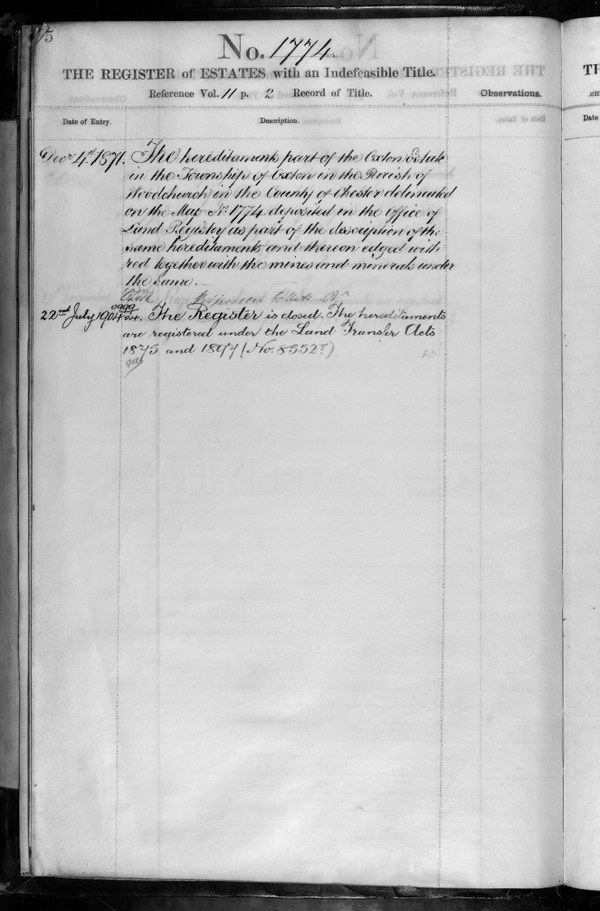 5
No. 1774.
THE REGISTER of ESTATES with an Indefeasible Title.
Reference Vol. 11 p. 2 Record of Title.
Observations.
Date of Entry.
Description.
Decr 4th 1871. The hereditaments part of the Oxton Estate
in the Township of Oxton in the Parish of
Woodchurch in the County of Chester delineated
on the Map No. 1774 deposited in the Office of
Land Registry as part of the description of the
same hereditaments and thereon edged with
red together with the mines and minerals under
the same.
22nd July 1904. The Register is closed. The hereditaments
are registered under the Land Transfer Acts
1875 and 1897 (No. 8552)
TH
Date